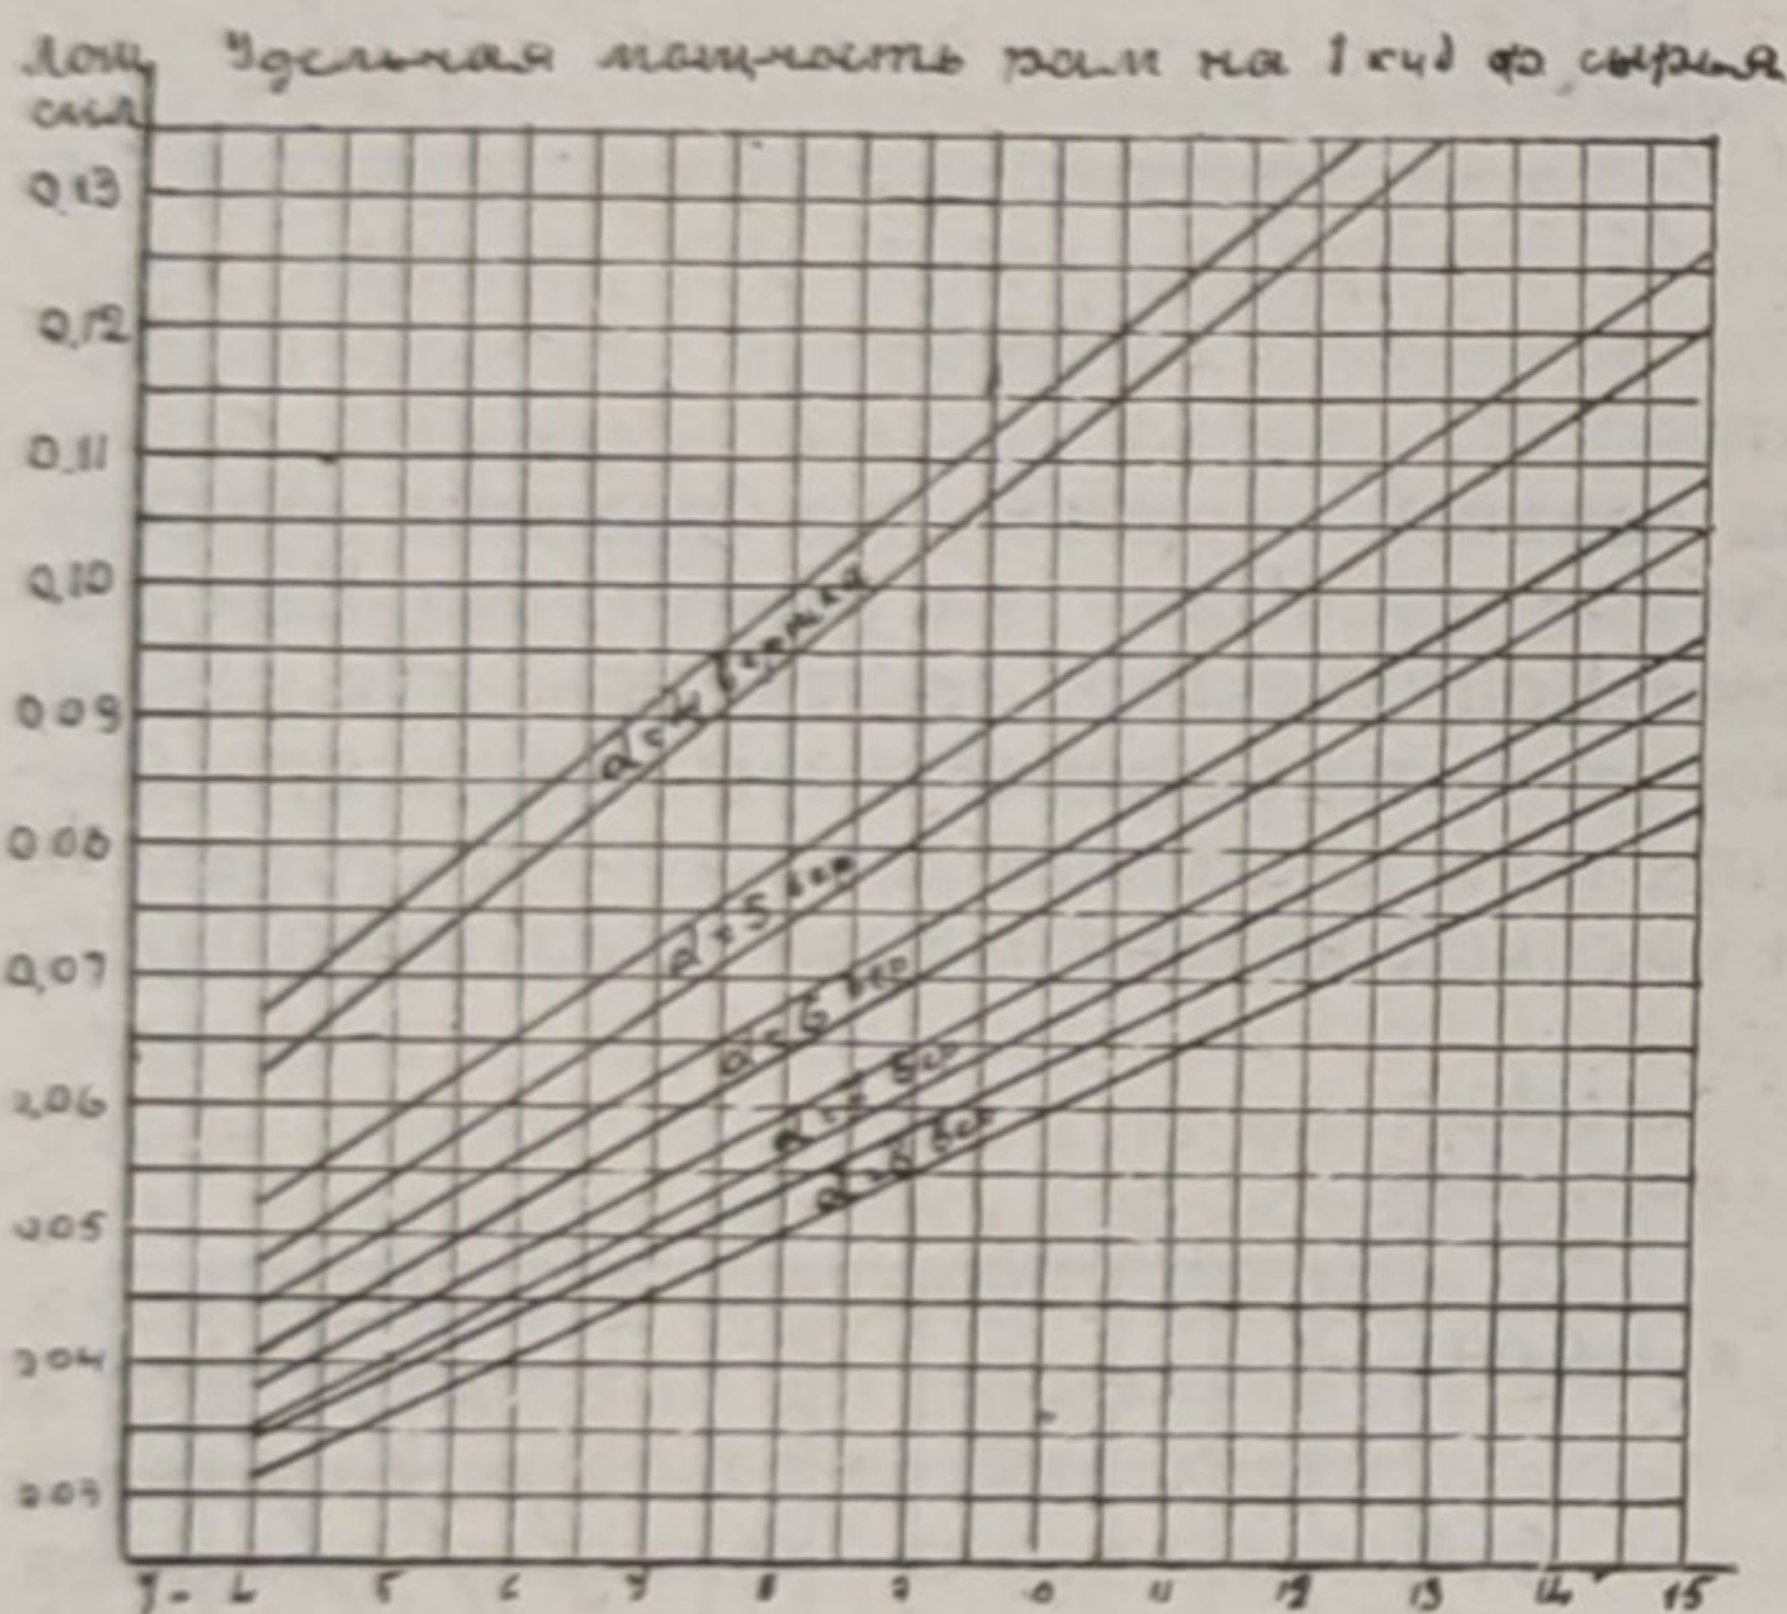 Лош. Удельная мощность рам на 1 куб ф. сырья
сил
0,13
0,12
0,11
0,10
0,09
0,08
0,07
0,06
0,05
0,04
0,03
d = 4 вершка
d = 5 вер
d = 6 вер
d = 7 вер
d = 8 вер
4 5 6 7 8 9 10 11 12 13 14 15